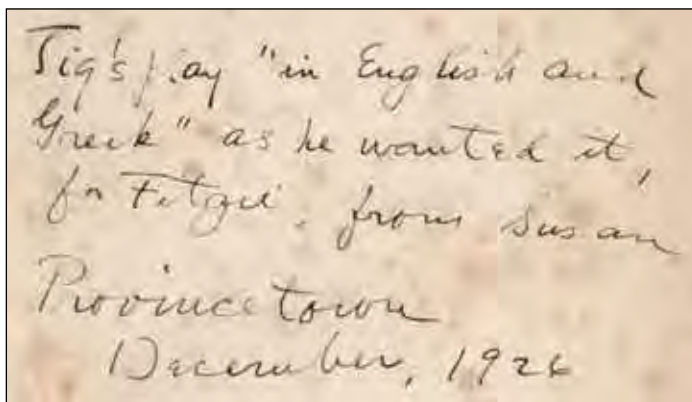 Jig's play "in English and
Greek" as he wanted it,
for Fitzie, from Susan
Provincetown
December, 1926